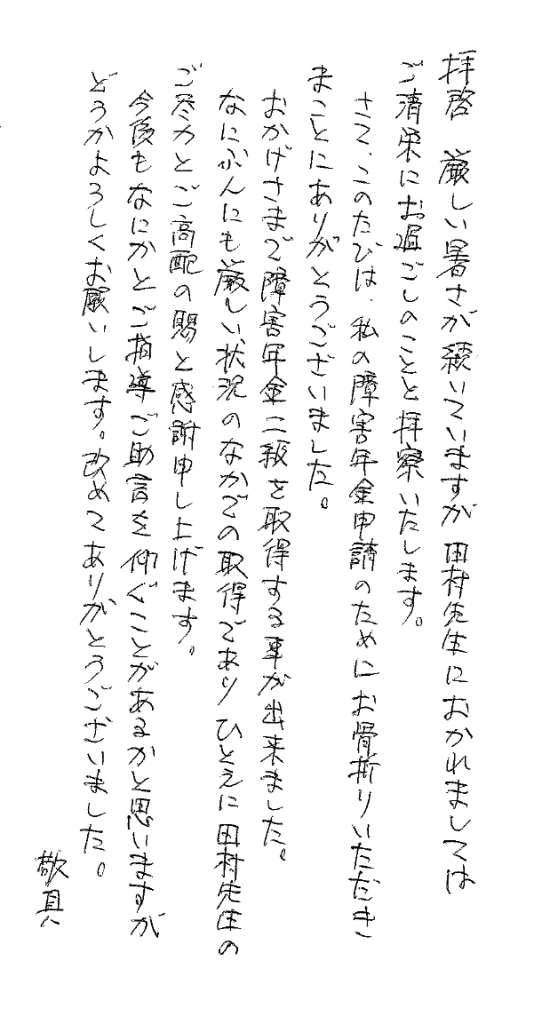 拝啓　厳しい暑さが続いていますが　田村先生におかれましては
ご清栄にお過ごしのことと拝察いたします。
さて、このたびは、私の障害年金申請のためにお骨折りいただき
まことにありがとうございました。
おかげさまで障害年金二級を取得する事が出来ました。
なにぶんにも厳しい状況のなかでの取得であり　ひとえに田村先生の
ご尽力とご高配の賜と感謝申し上げます。
今後もなにかとご指導ご助言を仰ぐことがあるかと思いますが
どうかよろしくお願いします。改めてありがとうございました。
敬具